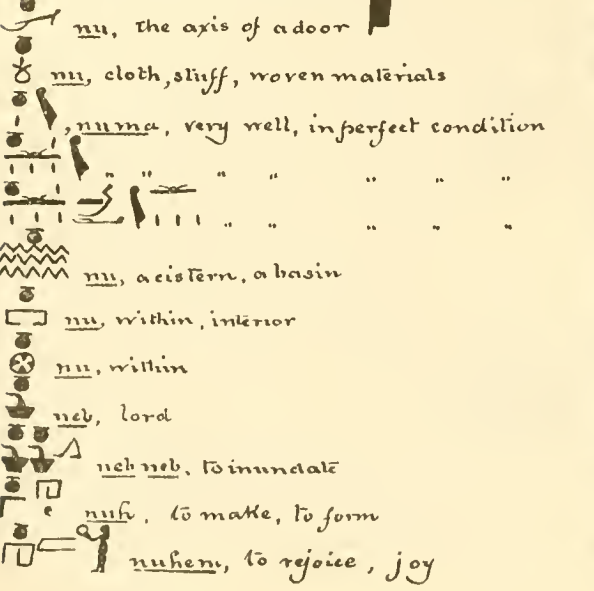 nu, the axis of a door
nu, cloth, stuff, woven materials
, numa, very well, in perfect condition
" " " " " " "
" " " " "
nu, a cistern, a basin
nu, within, interior
nu, within
neb, lord
neb neb, to inundate
nuh, to make, to form
nuhem, to rejoice, joy